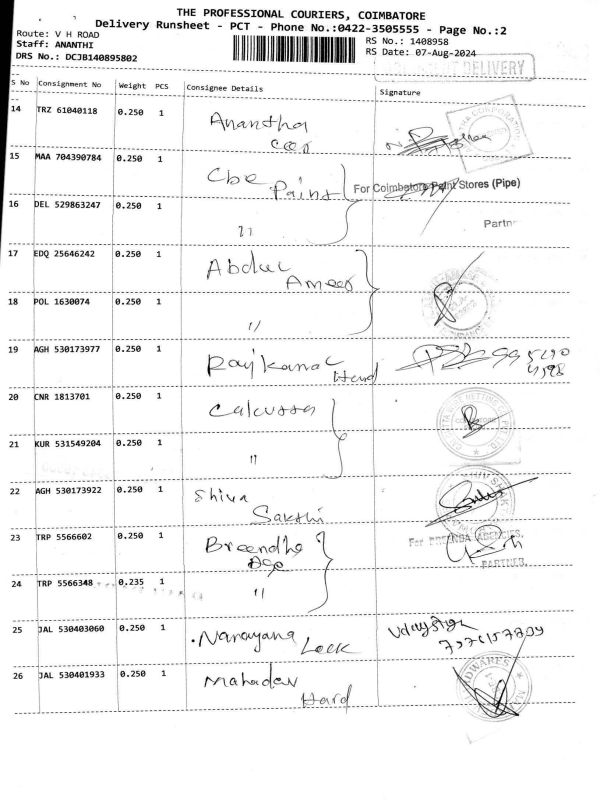 THE PROFESSIONAL COURIERS, COIMBATORE
Delivery Runsheet - PCT - Phone No.:0422-3505555 - Page No.:2
Route: V H ROAD
RS No.: 1408958
Staff: ANANTHI
RS Date: 07-Aug-2024
DRS No.: DCJB140895802
DELIVERY
S No Consignment No Weight PCS Consignee Details Signature
14 TRZ 61040118 0.250 1 Anantha
15 MAA 704390784 0.250 1 Cbe Paint For Coimbatore Paint Stores (Pipe)
16 DEL 529863247 0.250 1 "
Partner
17 EDQ 25646242 0.250 1 Abdul Ameer
18 POL 1630074 0.250 1 "
19 AGH 530173977 0.250 1 Rajkamal Hard
20 CNR 1813701 0.250 1 Calcutta
21 KUR 531549204 0.250 1 "
22 AGH 530173922 0.250 1 Shiva Sakthi
23 TRP 5566602 0.250 1 Breendha Age
For BREENDA AGENCIES,
PARTNER.
24 TRP 5566348 0.235 1 "
25 JAL 530403060 0.250 1 Narayana Lock
26 JAL 530401933 0.250 1 Mahadev Hard